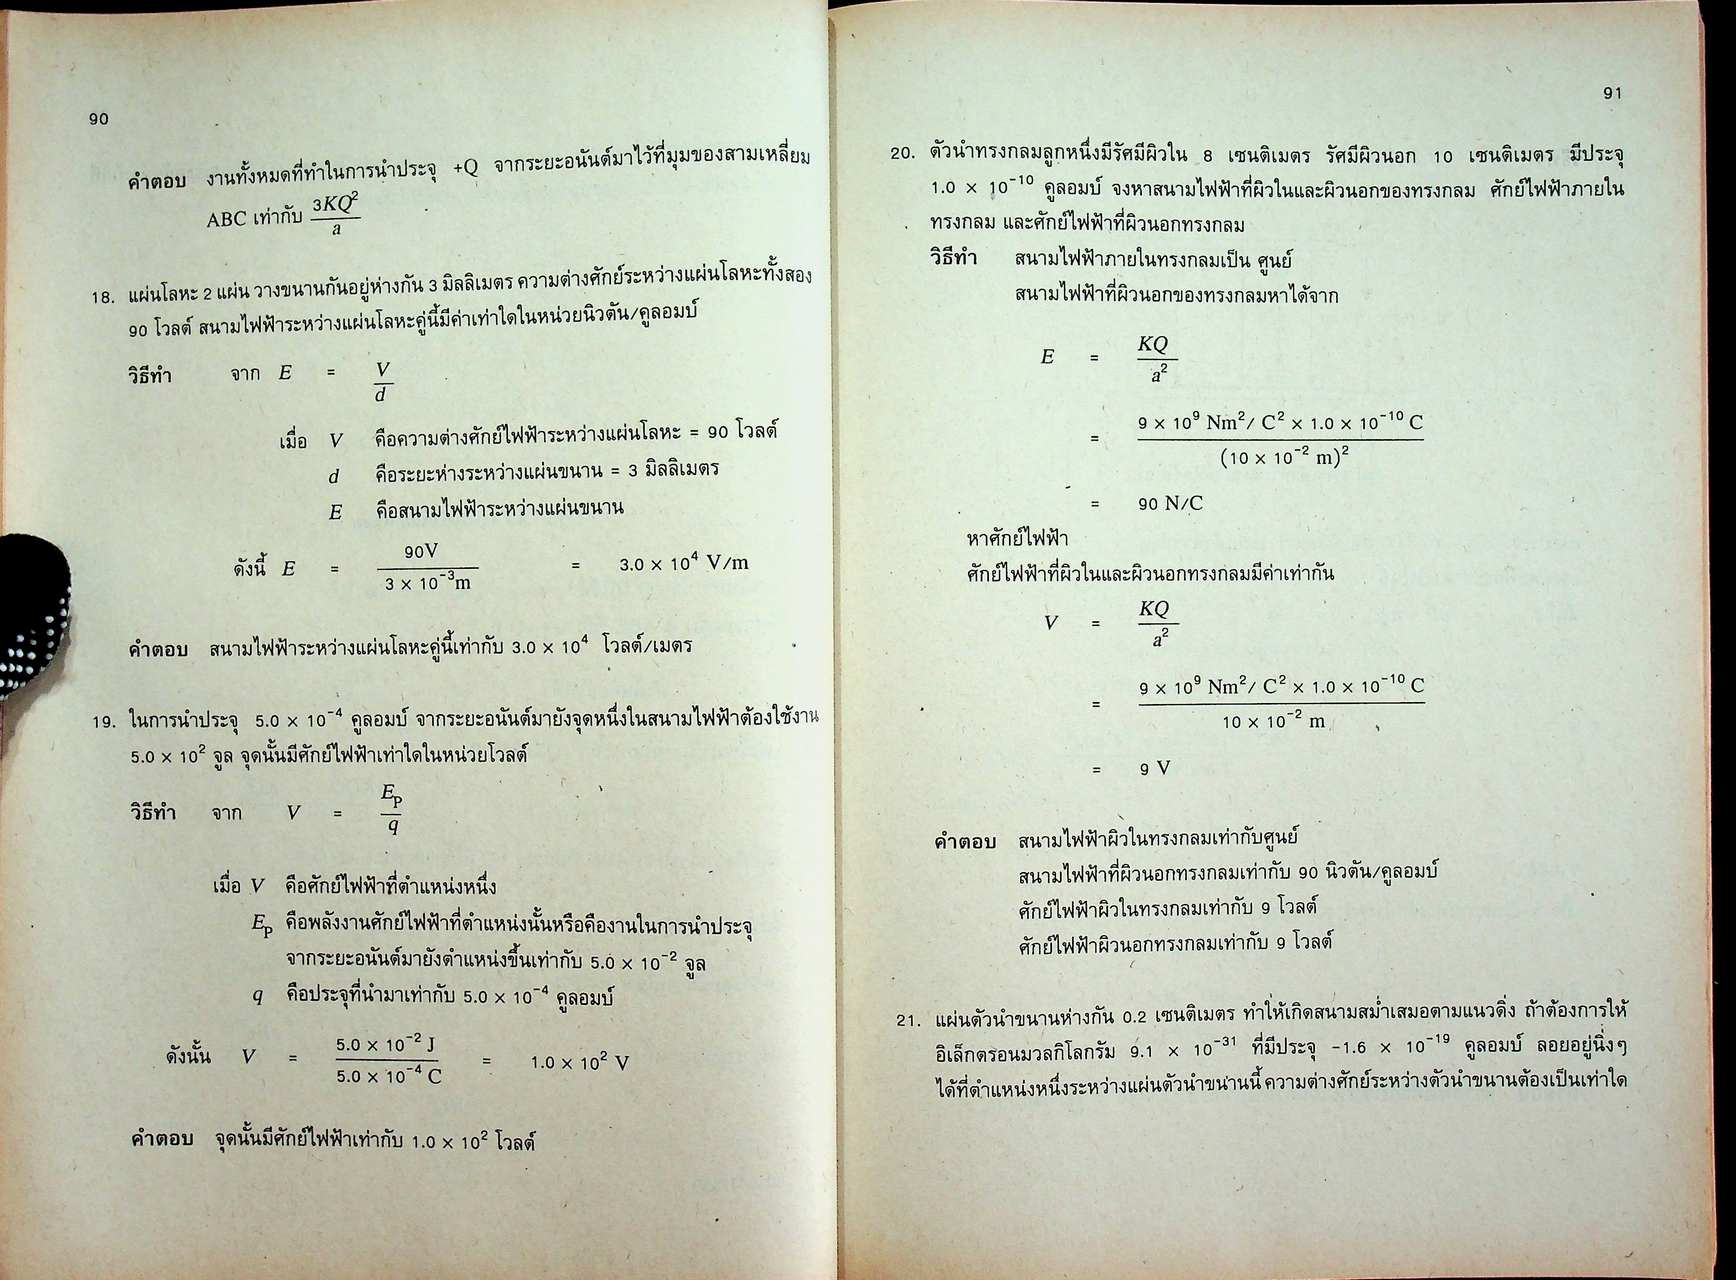 90
คำตอบ งานทั้งหมดที่ทำในการนำประจุ +Q จากระยะอนันต์มาไว้ที่มุมของสามเหลี่ยม
ABC เท่ากับ 3KQ²/a
18. แผ่นโลหะ 2 แผ่น วางขนานกันอยู่ห่างกัน 3 มิลลิเมตร ความต่างศักย์ระหว่างแผ่นโลหะทั้งสอง
90 โวลต์ สนามไฟฟ้าระหว่างแผ่นโลหะคู่นี้มีค่าเท่าใดในหน่วยนิวตัน/คูลอมบ์
วิธีทำ จาก E = V/d
เมื่อ V คือความต่างศักย์ไฟฟ้าระหว่างแผ่นโลหะ = 90 โวลต์
d คือระยะห่างระหว่างแผ่นขนาน = 3 มิลลิเมตร
E คือสนามไฟฟ้าระหว่างแผ่นขนาน
ดังนี้ E = 90V / 3 × 10⁻³m = 3.0 × 10⁴ V/m
คำตอบ สนามไฟฟ้าระหว่างแผ่นโลหะคู่นี้เท่ากับ 3.0 × 10⁴ โวลต์/เมตร
19. ในการนำประจุ 5.0 × 10⁻⁴ คูลอมบ์ จากระยะอนันต์มายังจุดหนึ่งในสนามไฟฟ้าต้องใช้งาน
5.0 × 10² จูล จุดนั้นมีศักย์ไฟฟ้าเท่าใดในหน่วยโวลต์
วิธีทำ จาก V = Eₚ/q
เมื่อ V คือศักย์ไฟฟ้าที่ตำแหน่งหนึ่ง
Eₚ คือพลังงานศักย์ไฟฟ้าที่ตำแหน่งนั้นหรือคืองานในการนำประจุ
จากระยะอนันต์มายังตำแหน่งขึ้นเท่ากับ 5.0 × 10⁻² จูล
q คือประจุที่นำมาเท่ากับ 5.0 × 10⁻⁴ คูลอมบ์
ดังนั้น V = 5.0 × 10⁻² J / 5.0 × 10⁻⁴ C = 1.0 × 10² V
คำตอบ จุดนั้นมีศักย์ไฟฟ้าเท่ากับ 1.0 × 10² โวลต์
91
20. ตัวนำทรงกลมลูกหนึ่งมีรัศมีผิวใน 8 เซนติเมตร รัศมีผิวนอก 10 เซนติเมตร มีประจุ
1.0 × 10⁻¹⁰ คูลอมบ์ จงหาสนามไฟฟ้าที่ผิวในและผิวนอกของทรงกลม ศักย์ไฟฟ้าภายใน
ทรงกลม และศักย์ไฟฟ้าที่ผิวนอกทรงกลม
วิธีทำ สนามไฟฟ้าภายในทรงกลมเป็น ศูนย์
สนามไฟฟ้าที่ผิวนอกของทรงกลมหาได้จาก
E = KQ/a²
= 9 × 10⁹ Nm²/ C² × 1.0 × 10⁻¹⁰ C / (10 × 10⁻² m)²
= 90 N/C
หาศักย์ไฟฟ้า
ศักย์ไฟฟ้าที่ผิวในและผิวนอกทรงกลมมีค่าเท่ากัน
V = KQ/a²
= 9 × 10⁹ Nm²/ C² × 1.0 × 10⁻¹⁰ C / 10 × 10⁻² m
= 9 V
คำตอบ สนามไฟฟ้าผิวในทรงกลมเท่ากับศูนย์
สนามไฟฟ้าที่ผิวนอกทรงกลมเท่ากับ 90 นิวตัน/คูลอมบ์
ศักย์ไฟฟ้าผิวในทรงกลมเท่ากับ 9 โวลต์
ศักย์ไฟฟ้าผิวนอกทรงกลมเท่ากับ 9 โวลต์
21. แผ่นตัวนำขนานห่างกัน 0.2 เซนติเมตร ทำให้เกิดสนามสม่ำเสมอตามแนวดิ่ง ถ้าต้องการให้
อิเล็กตรอนมวลกิโลกรัม 9.1 × 10⁻³¹ ที่มีประจุ -1.6 × 10⁻¹⁹ คูลอมบ์ ลอยอยู่นิ่งๆ
ได้ที่ตำแหน่งหนึ่งระหว่างแผ่นตัวนำขนานนี้ ความต่างศักย์ระหว่างตัวนำขนานต้องเป็นเท่าใด